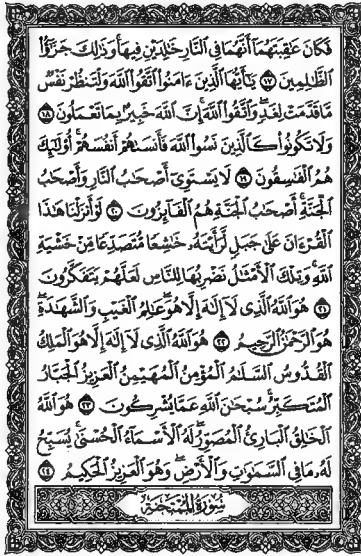 فَكَانَ عَٰقِبَتَهُمَآ أَنَّهُمَا فِى ٱلنَّارِ خَٰلِدَيْنِ فِيهَا وَذَٰلِكَ جَزَٰٓؤُا۟
ٱلظَّٰلِمِينَ ١٧ يَٰٓأَيُّهَا ٱلَّذِينَ ءَامَنُوا۟ ٱتَّقُوا۟ ٱللَّهَ وَلْتَنظُرْ نَفْسٌ
مَّا قَدَّمَتْ لِغَدٍ وَٱتَّقُوا۟ ٱللَّهَ إِنَّ ٱللَّهَ خَبِيرٌۢ بِمَا تَعْمَلُونَ ١٨
وَلَا تَكُونُوا۟ كَٱلَّذِينَ نَسُوا۟ ٱللَّهَ فَأَنسَىٰهُمْ أَنفُسَهُمْ أُو۟لَٰٓئِكَ
هُمُ ٱلْفَٰسِقُونَ ١٩ لَا يَسْتَوِىٓ أَصْحَٰبُ ٱلنَّارِ وَأَصْحَٰبُ
ٱلْجَنَّةِ أَصْحَٰبُ ٱلْجَنَّةِ هُمُ ٱلْفَآئِزُونَ ٢٠ لَوْ أَنزَلْنَا هَٰذَا
ٱلْقُرْءَانَ عَلَىٰ جَبَلٍ لَّرَأَيْتَهُۥ خَٰشِعًا مُّتَصَدِّعًا مِّنْ خَشْيَةِ
ٱللَّهِ وَتِلْكَ ٱلْأَمْثَٰلُ نَضْرِبُهَا لِلنَّاسِ لَعَلَّهُمْ يَتَفَكَّرُونَ
٢١ هُوَ ٱللَّهُ ٱلَّذِى لَآ إِلَٰهَ إِلَّا هُوَ عَٰلِمُ ٱلْغَيْبِ وَٱلشَّهَٰدَةِ
هُوَ ٱلرَّحْمَٰنُ ٱلرَّحِيمُ ٢٢ هُوَ ٱللَّهُ ٱلَّذِى لَآ إِلَٰهَ إِلَّا هُوَ ٱلْمَلِكُ
ٱلْقُدُّوسُ ٱلسَّلَٰمُ ٱلْمُؤْمِنُ ٱلْمُهَيْمِنُ ٱلْعَزِيزُ ٱلْجَبَّارُ
ٱلْمُتَكَبِّرُ سُبْحَٰنَ ٱللَّهِ عَمَّا يُشْرِكُونَ ٢٣ هُوَ ٱللَّهُ
ٱلْخَٰلِقُ ٱلْبَارِئُ ٱلْمُصَوِّرُ لَهُ ٱلْأَسْمَآءُ ٱلْحُسْنَىٰ يُسَبِّحُ
لَهُۥ مَا فِى ٱلسَّمَٰوَٰتِ وَٱلْأَرْضِ وَهُوَ ٱلْعَزِيزُ ٱلْحَكِيمُ ٢٤
سُورَةُ ٱلْمُمْتَحَنَةِ